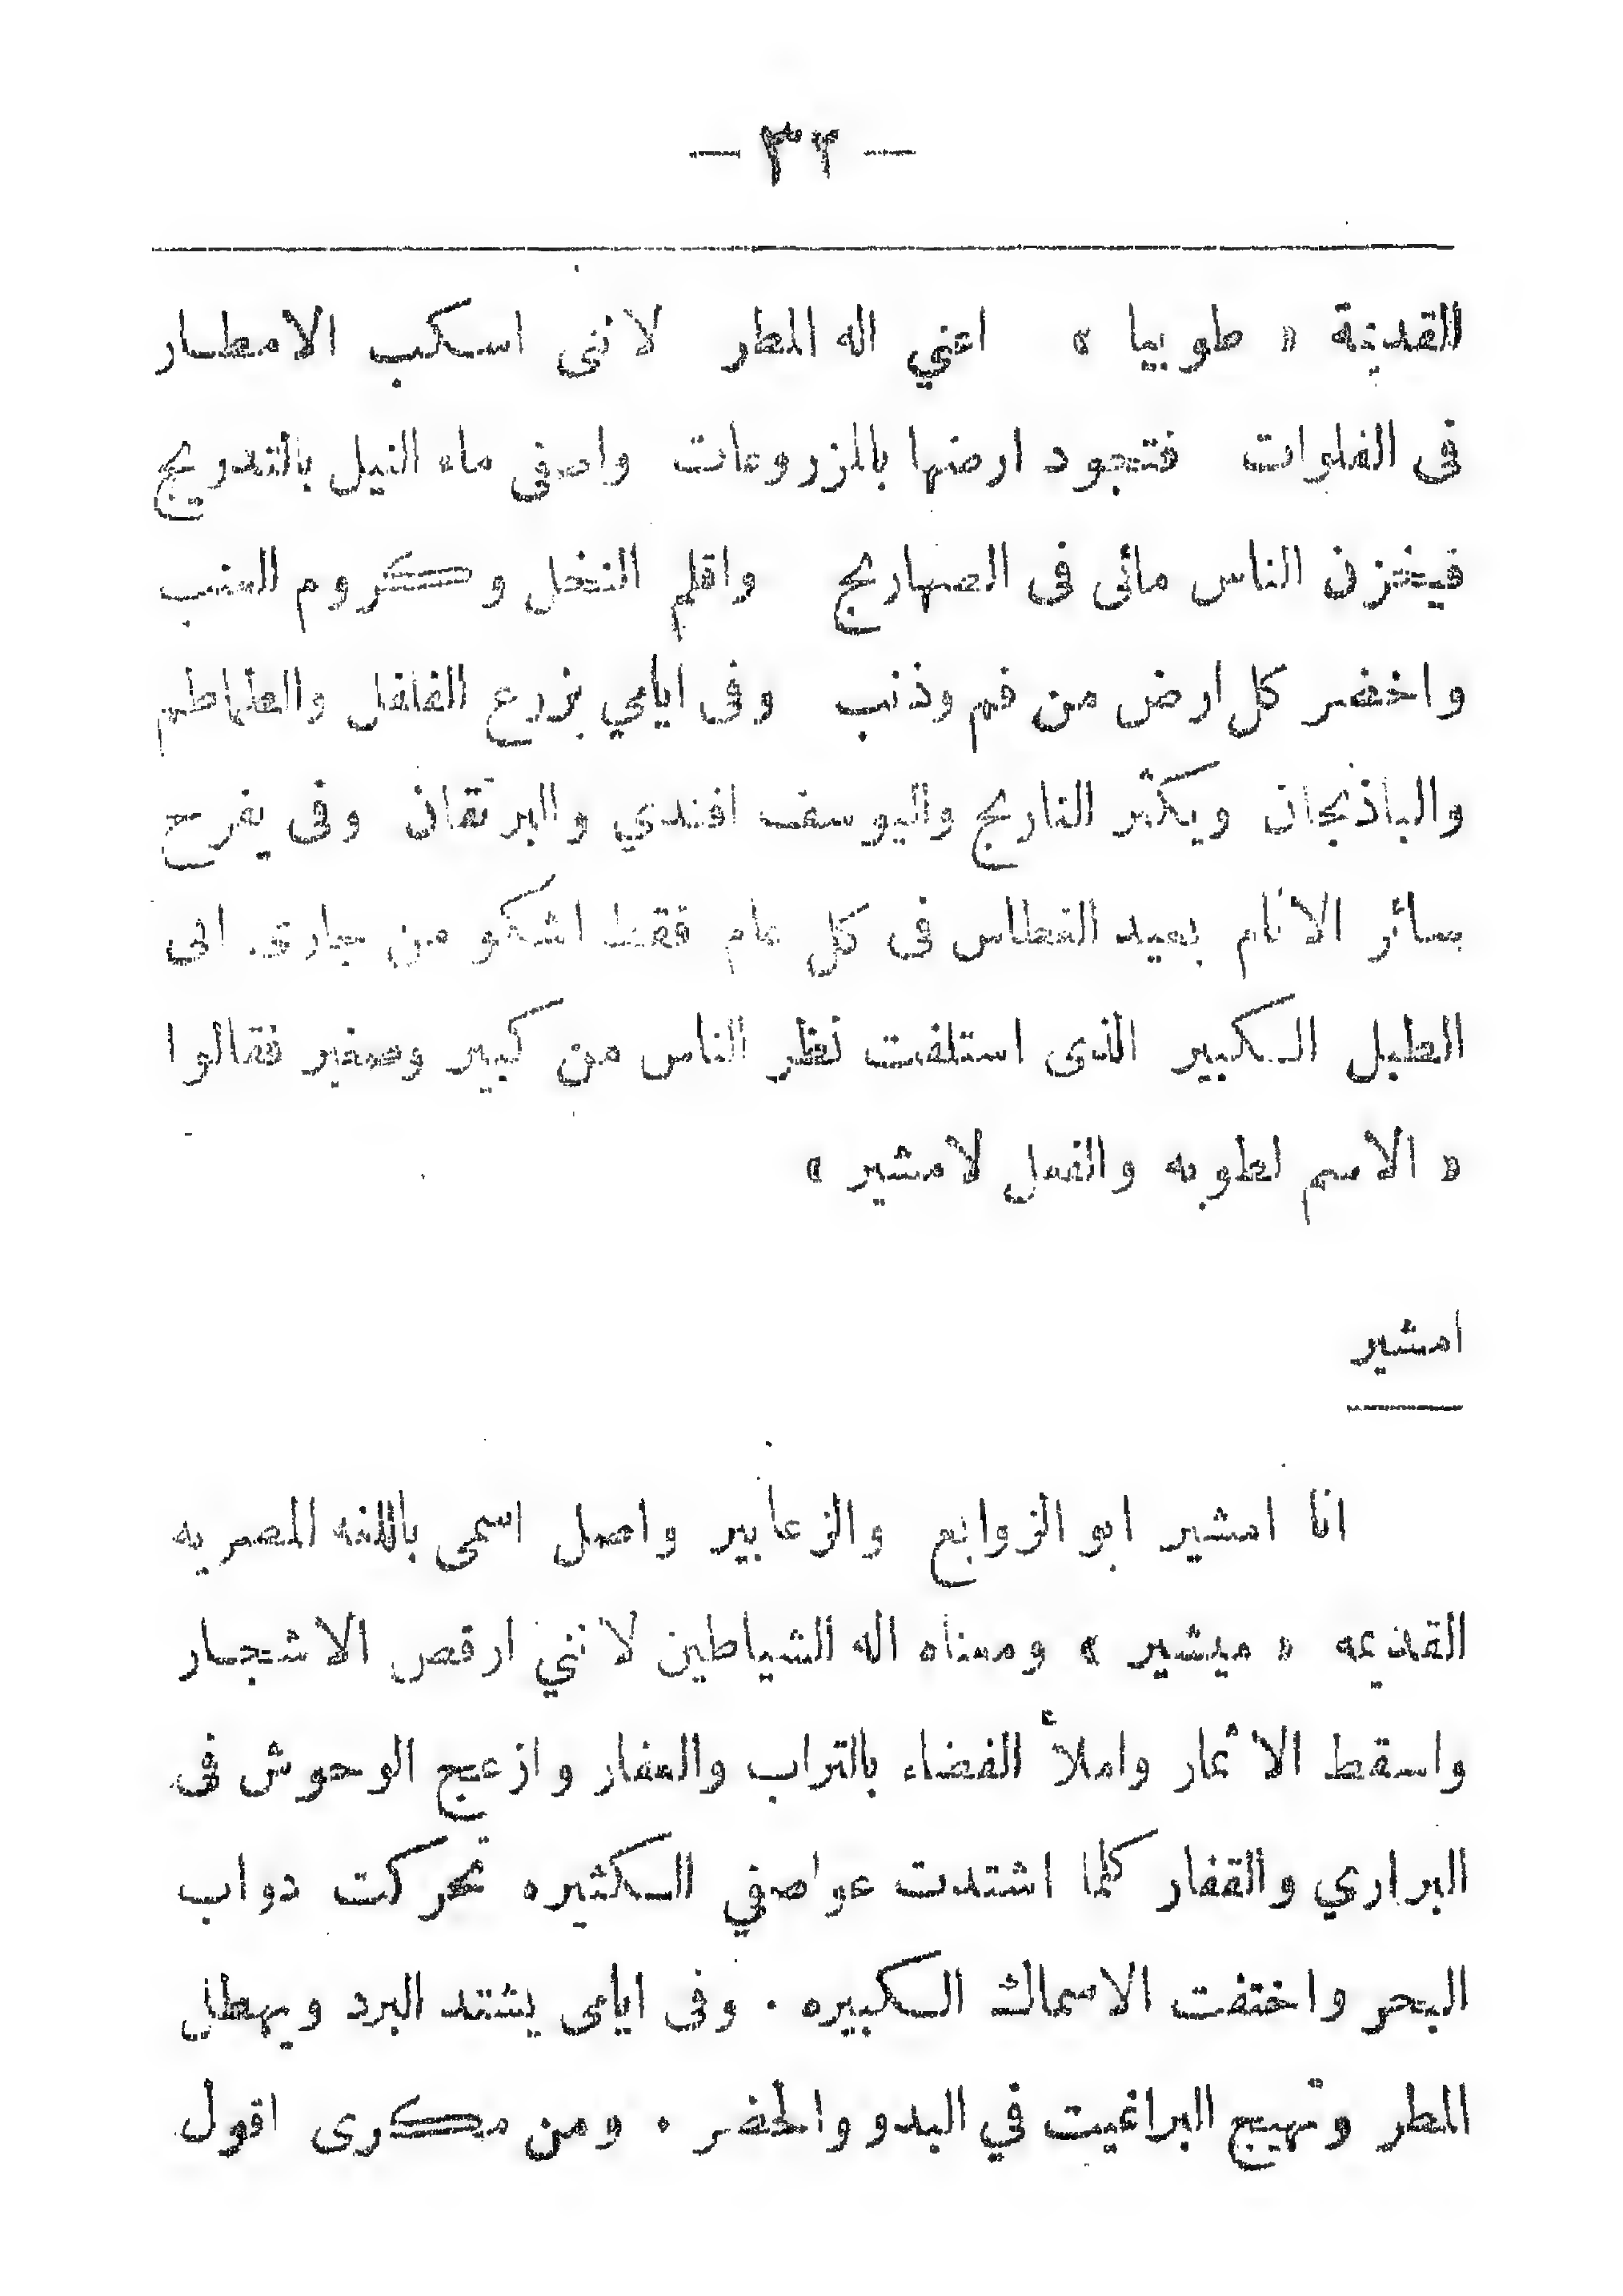 — ٣٢ —
القديمة « طوبيا » اعني اله المطر لاننى اسكب الامطار
فى الفلوات فتجود ارضها بالمزروعات واصفى ماء النيل بالتدريج
فيخزن الناس مائى فى الصهاريج واقلم النخل وكروم العنب
واخضر كل ارض من فم وذنب وفى ايامي يزرع الفلفل والطماطم
والباذنجان ويكثر النارنج واليوسف افندي والبرتقان وفى يفرح
سائر الانام بعيد الغطاس فى كل عام فقط اشكو من جارى ابى
الطبل الكبير الذى استلفت نظر الناس من كبير وصغير فقالوا
« الاسم لطوبه والفعل لامشير »
امشير
انا امشير ابو الزوابع والزعابير واصل اسمى باللغه المصريه
القديمه « ميشير » ومعناه اله الشياطين لانني ارقص الاشجار
واسقط الاثمار واملأ الفضاء بالتراب والعفار وازعج الوحوش فى
البراري والقفار كلما اشتدت عواصفي الكثيره تحركت دواب
البحر واختفت الاسماك الكبيره . وفى ايامى يشتد البرد ويهطل
المطر وتهيج البراغيت في البدو والحضر . ومن مكرى اقول